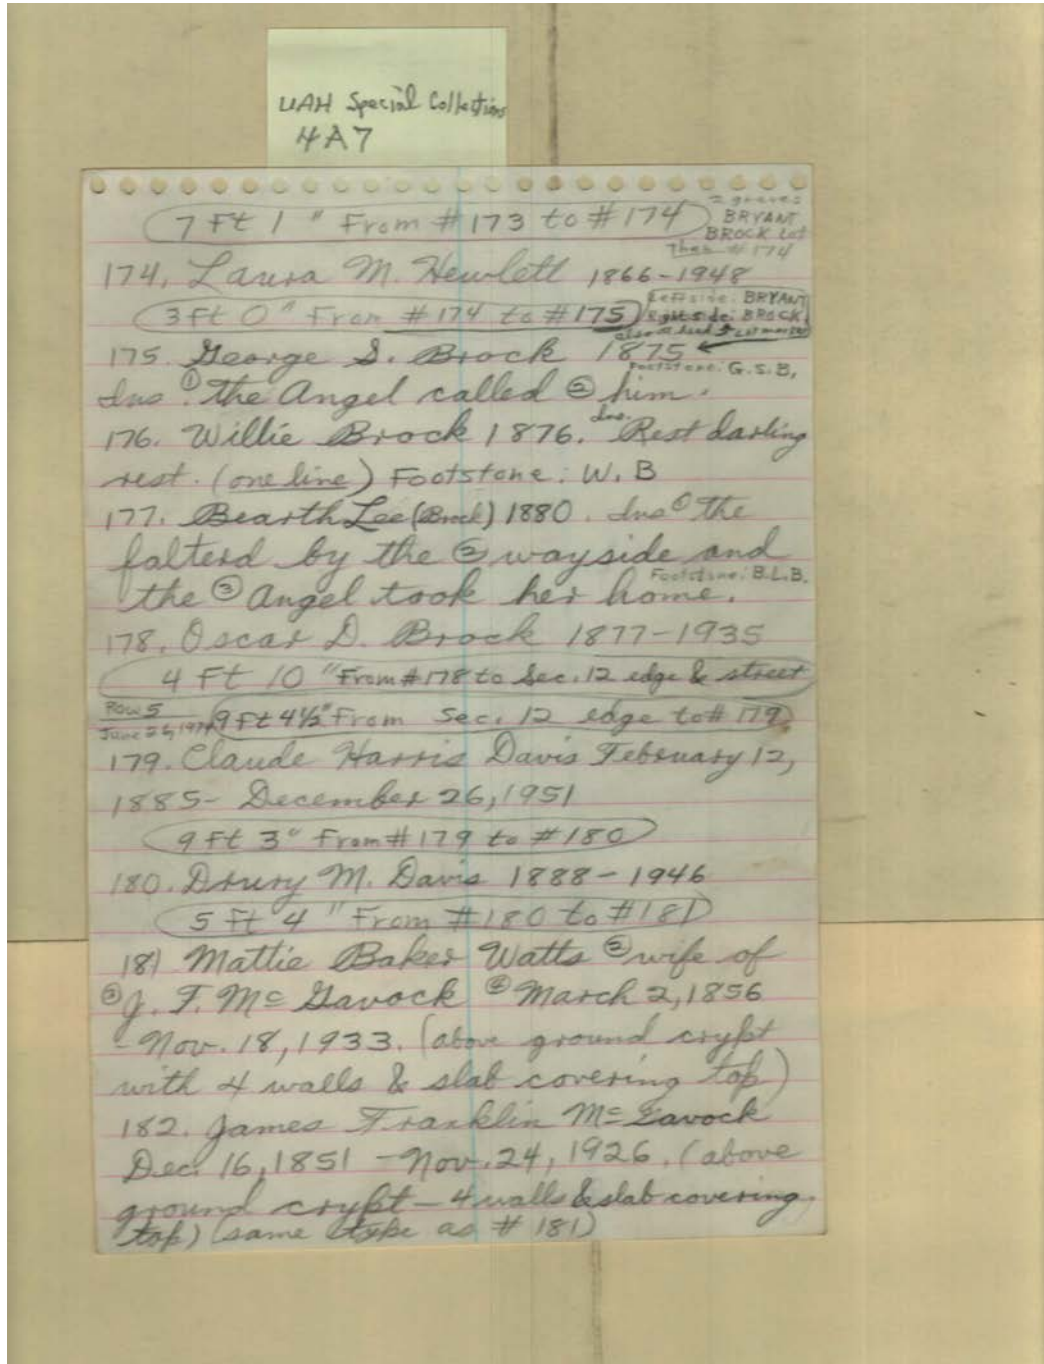 UAH Special Collections
4A7
7 Ft 1" From #173 to #174
2 graves
BRYANT
BROCK Lot
Then #174
174. Laura M. Hewlett 1866-1948
3 Ft 0" From #174 to #175
Left side: BRYANT
Right side: BROCK
175. George S. Brock 1875
Footstone: G.S.B.
Ins ① the Angel called ② him.
176. Willie Brock 1876. Ins. Rest darling
rest. (one line) Footstone: W. B
177. Bearth Lee (Brock) 1880. Ins ① the
falterd by the ② wayside and
Footstone: B.L.B.
the ③ Angel took her home.
178. Oscar D. Brock 1877-1935
4 Ft 10" From #178 to Sec. 12 edge & street
Row 5
June 26,
9 Ft 4½" From Sec. 12 edge to #179
179. Claude Harris Davis February 12,
1885- December 26, 1951
9 Ft 3" From #179 to #180
180. Drury M. Davis 1888-1946
5 Ft 4" From #180 to #181
181 Mattie Baker Watts ② wife of
③ J. F. Mc Gavock ④ March 2, 1856
- Nov. 18, 1933. (above ground crypt
with 4 walls & slab covering top)
182. James Franklin Mc Gavock
Dec. 16, 1851 - Nov. 24, 1926. (above
ground crypt - 4 walls & slab covering
top) (same type as # 181)